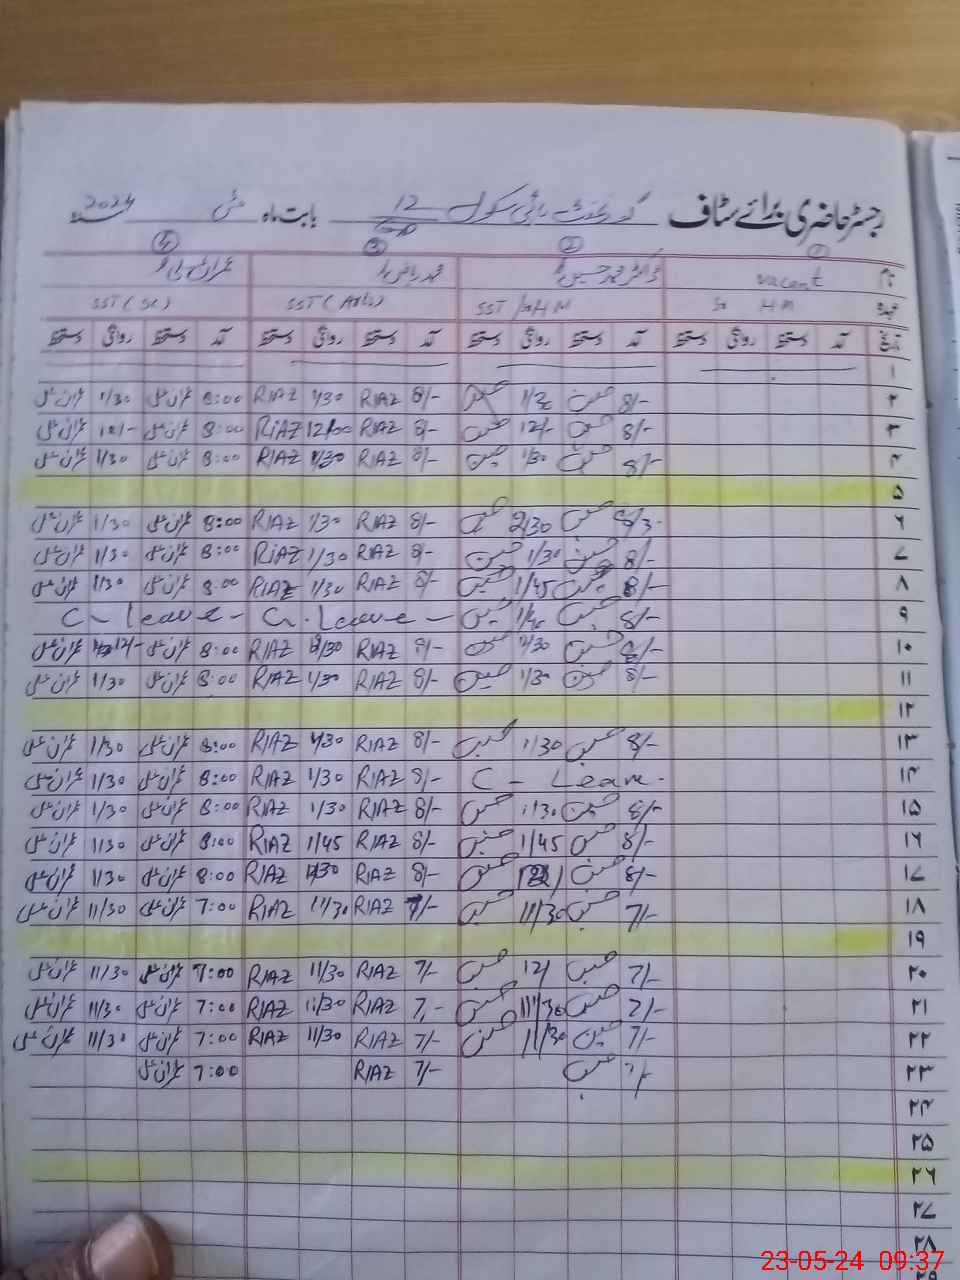 رجسٹر حاضری برائے سٹاف گورنمنٹ ہائی سکول 12 بابت ماہ مئی 2024
① ② ③ ④
نام vacant ڈاکٹر محمد حسین محمد ریاض عمران علی
عہدہ Sr HM SST / Sr HM SST (Arts) SST (Sc)
تاریخ آمد دستخط روانگی دستخط آمد دستخط روانگی دستخط آمد دستخط روانگی دستخط آمد دستخط روانگی دستخط
۱
۲ 8/- حسین 1/30 حسین 8/- RIAZ 1/30 RIAZ 8:00 عمران علی 1/30 عمران علی
۳ 8/- حسین 12/- حسین 8/- RIAZ 12/00 RIAZ 8:00 عمران علی 12/- عمران علی
۴ 8/- حسین 1/30 حسین 8/- RIAZ 1/30 RIAZ 8:00 عمران علی 1/30 عمران علی
۵
۶ حسین 2/30 حسین 8/- RIAZ 1/30 RIAZ 8:00 عمران علی 1/30 عمران علی
۷ 8/- حسین 1/30 حسین 8/- RIAZ 1/30 RIAZ 8:00 عمران علی 1/30 عمران علی
۸ 8/- حسین 1/45 حسین 8/- RIAZ 1/30 RIAZ 8:00 عمران علی 1/30 عمران علی
۹ 8/- حسین حسین C. Leave - C - Leave -
۱۰ 8/- حسین حسین 8/- RIAZ RIAZ 8:00 عمران علی 12/- عمران علی
۱۱ 8/- حسین 1/30 حسین 8/- RIAZ 1/30 RIAZ 8:00 عمران علی 1/30 عمران علی
۱۲
۱۳ 8/- حسین 1/30 حسین 8/- RIAZ 1/30 RIAZ 8:00 عمران علی 1/30 عمران علی
۱۴ C - Leave - 8/- RIAZ 1/30 RIAZ 8:00 عمران علی 1/30 عمران علی
۱۵ 8/- حسین 1/30 حسین 8/- RIAZ 1/30 RIAZ 8:00 عمران علی 1/30 عمران علی
۱۶ 8/- حسین 1/45 حسین 8/- RIAZ 1/45 RIAZ 8:00 عمران علی 1/30 عمران علی
۱۷ 8/- حسین حسین 8/- RIAZ RIAZ 8:00 عمران علی 1/30 عمران علی
۱۸ 7/- حسین 11/30 حسین 7/- RIAZ 11/30 RIAZ 7:00 عمران علی 11/30 عمران علی
۱۹
۲۰ 7/- حسین 12/ حسین 7/- RIAZ 11/30 RIAZ 7:00 عمران علی 11/30 عمران علی
۲۱ 7/- حسین 11/30 حسین 7/- RIAZ 11/30 RIAZ 7:00 عمران علی 11/30 عمران علی
۲۲ 7/- حسین 11/30 حسین 7/- RIAZ 11/30 RIAZ 7:00 عمران علی 11/30 عمران علی
۲۳ 7/- حسین 7/- RIAZ 7:00 عمران علی
۲۴
۲۵
۲۶
۲۷
۲۸
۲۹
23-05-24 09:37